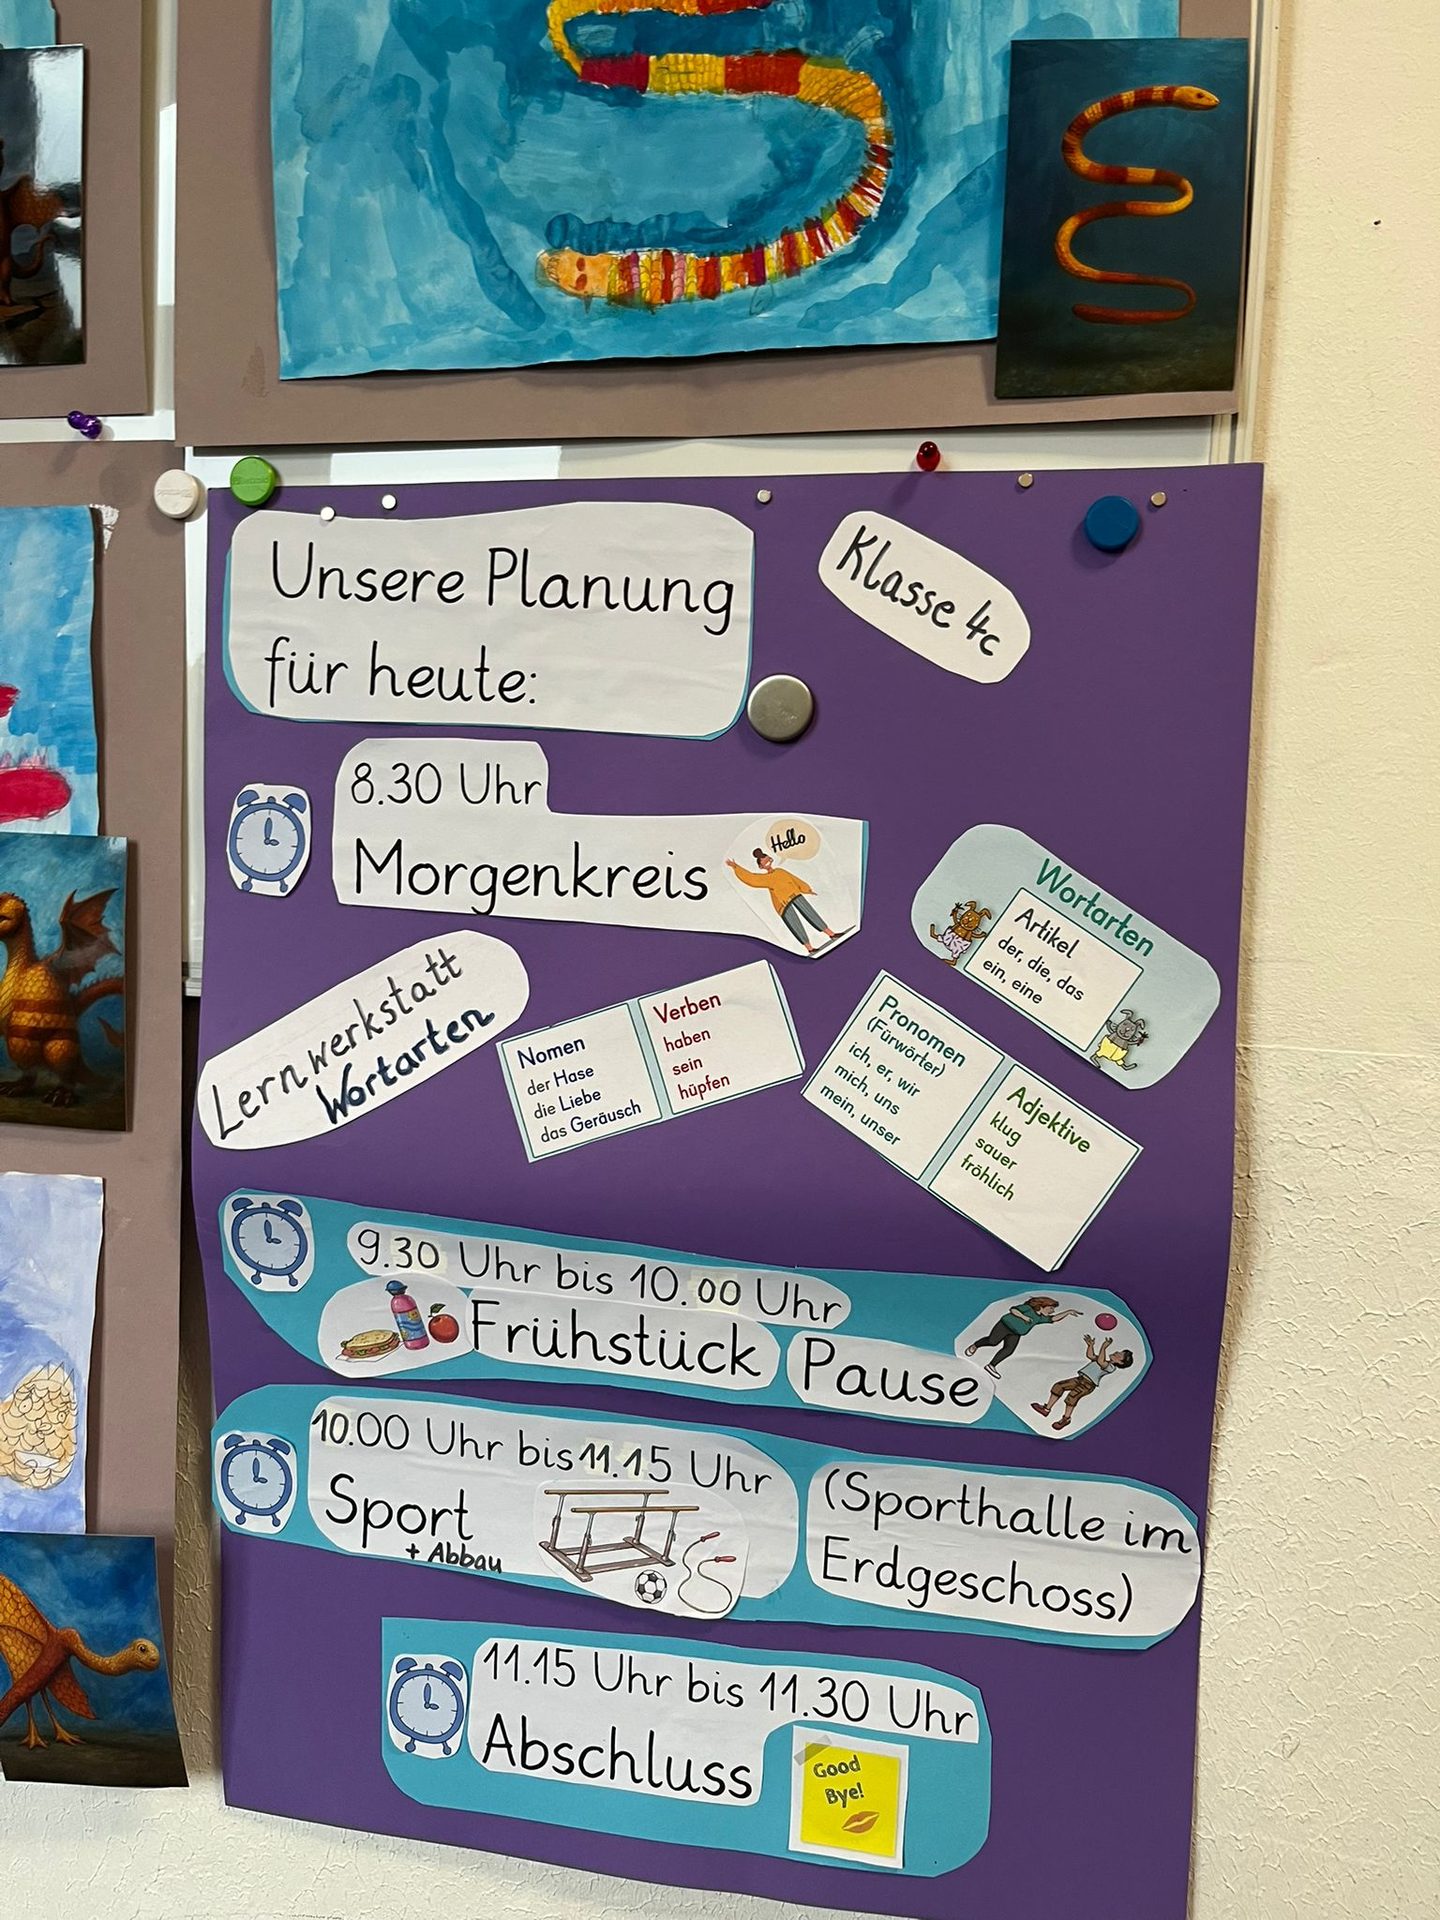 Unsere Planung
für heute:
Klasse 4c
8.30 Uhr
Morgenkreis
Hello
Lernwerkstatt
Wortarten
Nomen
der Hase
die Liebe
das Geräusch
Verben
haben
sein
hüpfen
Wortarten
Artikel
der, die, das
ein, eine
Pronomen
(Fürwörter)
ich, er, wir
mich, uns
mein, unser
Adjektive
klug
sauer
fröhlich
9.30 Uhr bis 10.00 Uhr
Frühstück Pause
10.00 Uhr bis 11.15 Uhr
Sport
+ Abbau
(Sporthalle im
Erdgeschoss)
11.15 Uhr bis 11.30 Uhr
Abschluss
Good
Bye!